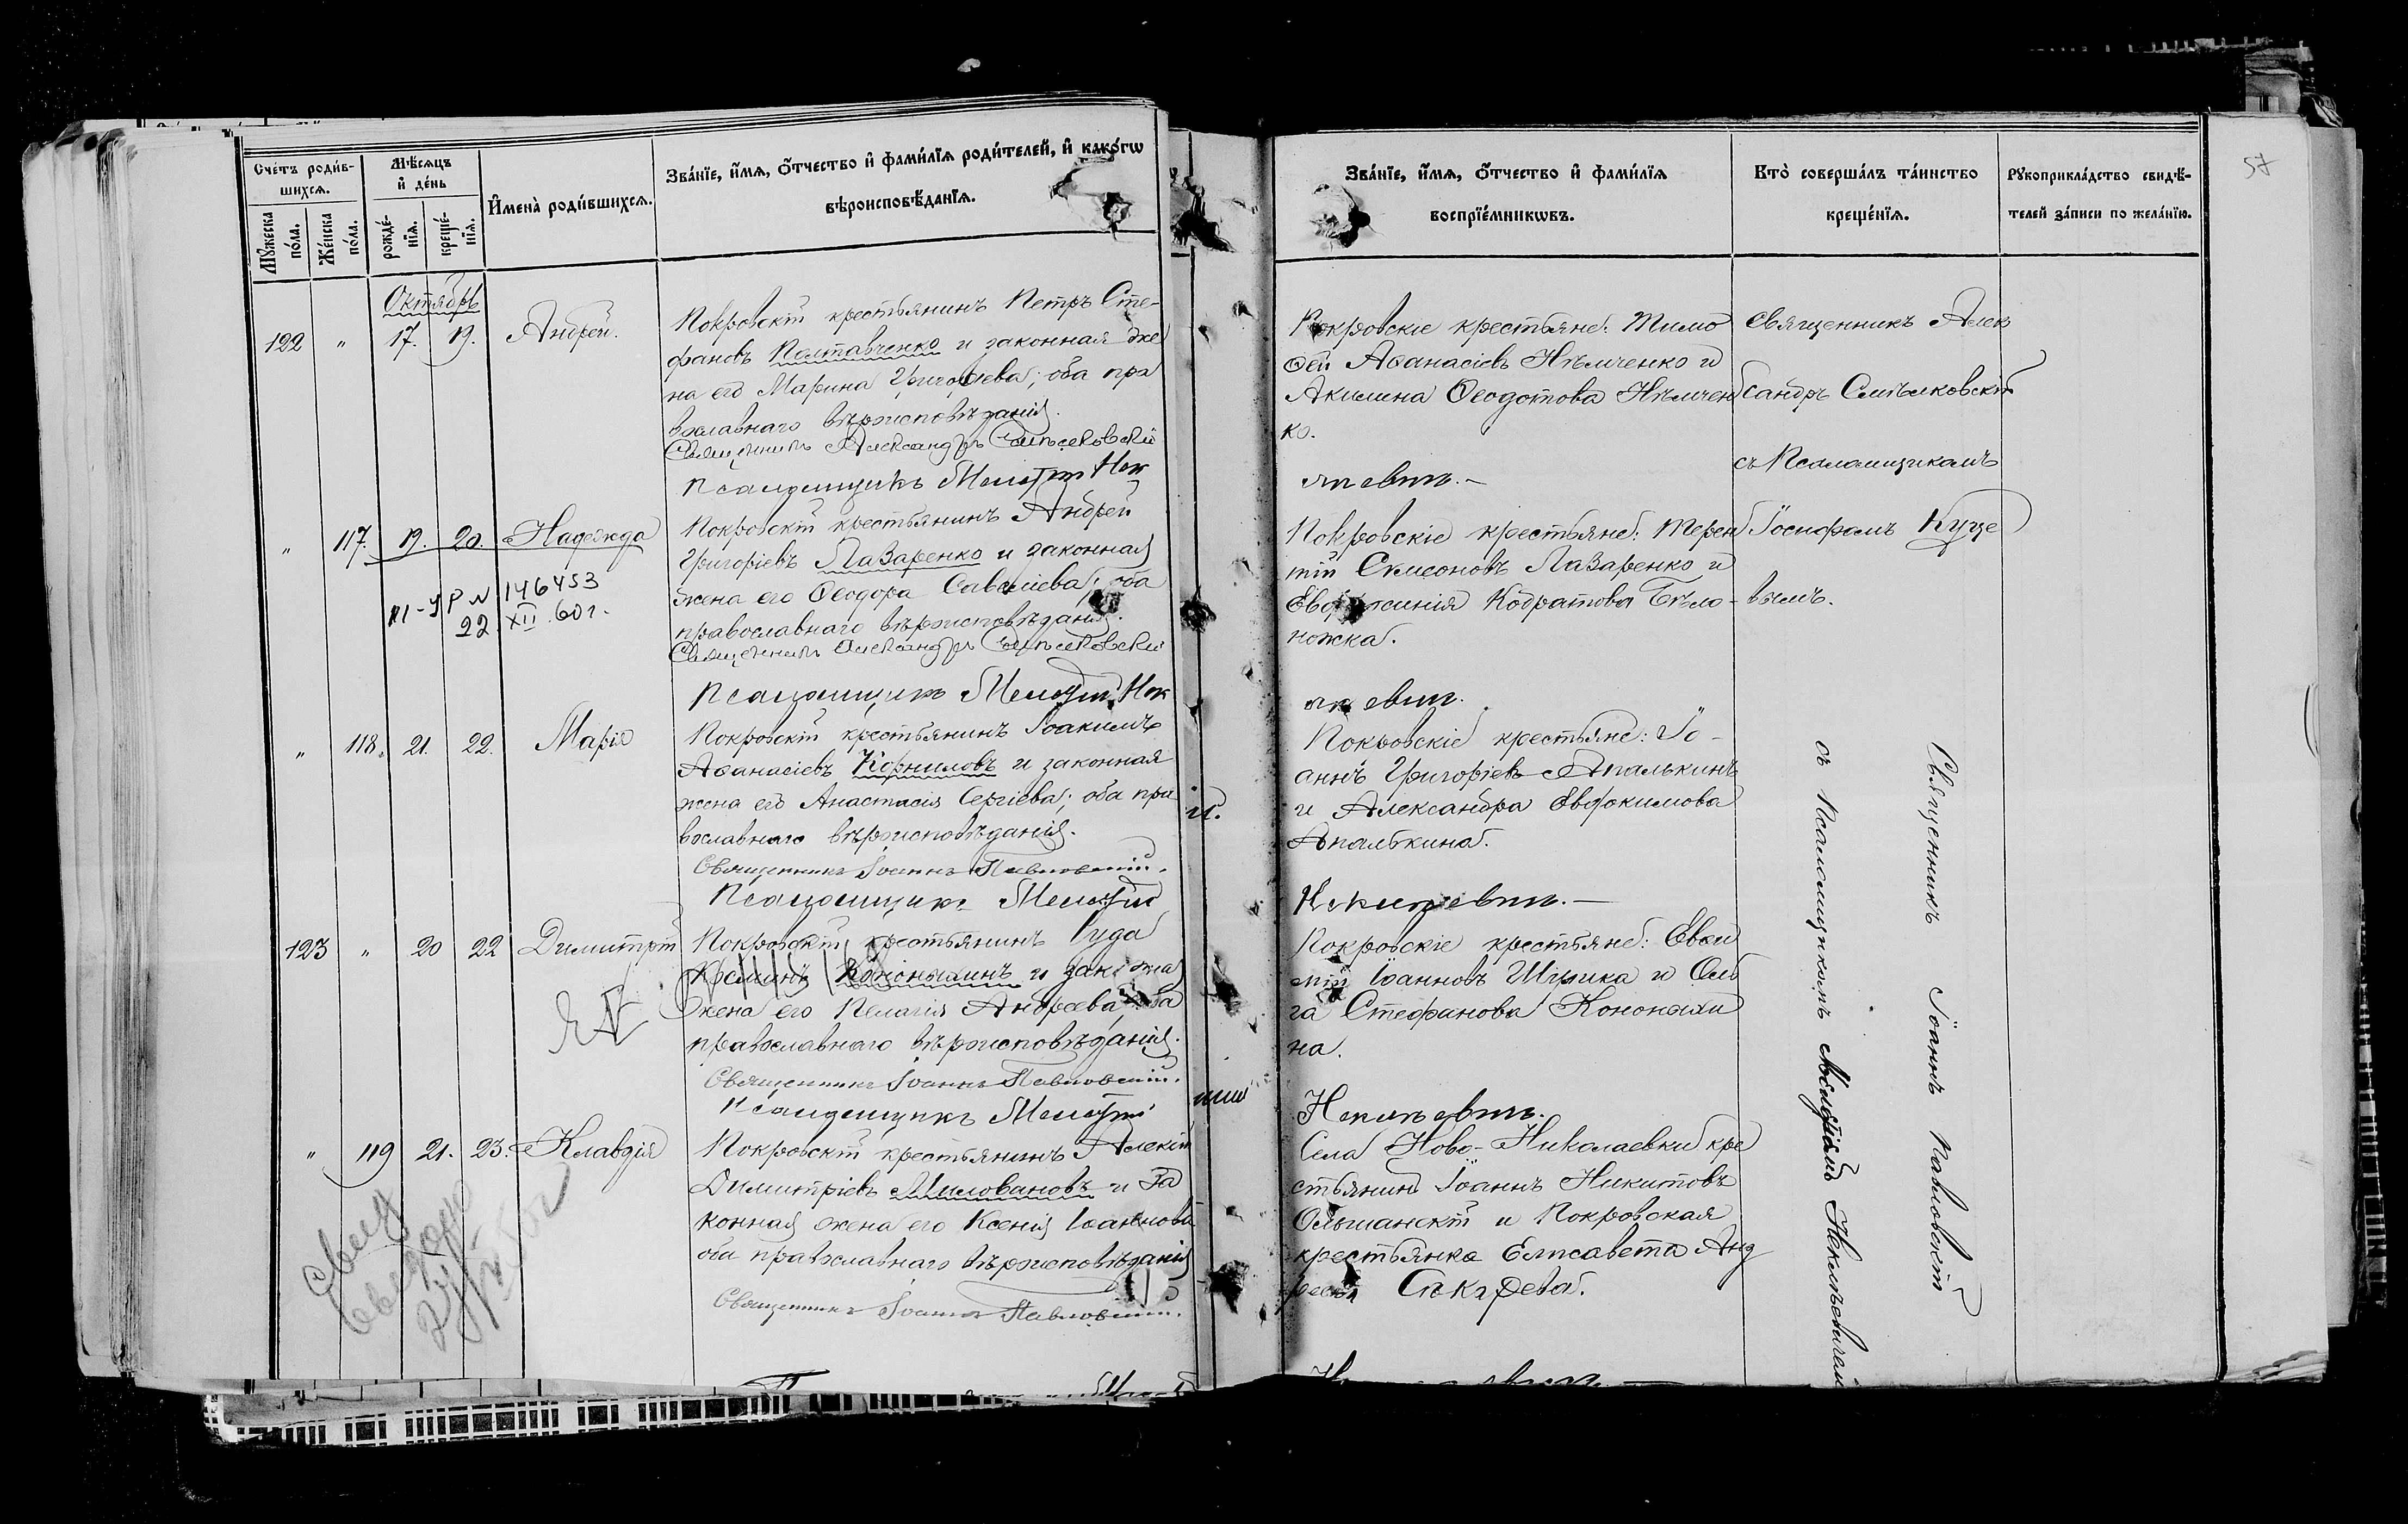 57
Счетъ родив-
шихся.
Мѣсяцъ
и день
Имена родившихся.
Званіе, имя, отчество и фамилія родителей, и какого
вѣроисповѣданія.
Мужеска
пола.
Женска
пола.
рожде-
нія.
креще-
нія.
Званіе, имя, отчество и фамилія
воспріемниковъ.
Кто совершалъ таинство
крещенія.
Рукоприкладство свидѣ-
телей записи по желанію.
Октябрь
122 " 17. 19. Андрей.
Покровскій крестьянинъ Петръ Сте-
фановъ Полтавченко и законная же
на его Марина Григоріева; оба пра
вославнаго вѣроисповѣданія.
Священникъ Александръ Смѣлковскій
Псаломщикъ Мелетій Нек
Покровскіе крестьяне: Тимо
ѳей Аѳанасіевъ Нѣмченко и
Акилина Ѳеодотова Нѣмчен
ко.
Священникъ Алек
сандръ Смѣлковскій
съ Псаломщикомъ
Іосифомъ Куце
вымъ.
" 117. 19. 20. Надежда
III-ЯР N 146453
22 XII .60г.
Покровскій крестьянинъ Андрей
Григоріевъ Лазаренко и законная
жена его Ѳеодора Савеліева; оба
православнаго вѣроисповѣданія.
Священникъ Александръ Смѣлковскій
Псаломщикъ Мелетій Нек
Покровскіе крестьяне: Терен
тій Симеоновъ Лазаренко и
Евфросинія Кодратова Бѣло-
ножка.
" 118. 21. 22. Марія
Покровскій крестьянинъ Іоакимъ
Аѳанасіевъ Корниловъ и законная
жена его Анастасія Сергіева; оба пра
вославнаго вѣроисповѣданія.
Священникъ Іоаннъ Павловскій.
Псаломщикъ Мелетій
Покровскіе крестьяне: Іо-
аннъ Григоріевъ Апалькинъ
и Александра Евдокимова
Апалькина.
Священникъ Іоаннъ Павловскій
съ Псаломщикомъ Мелетіемъ
123 " 20 22 Димитрій
Покровскій крестьянинъ Іуда
и законная
жена его Пелагія Андреева; оба
православнаго вѣроисповѣданія.
Священникъ Іоаннъ Павловскій.
Псаломщикъ Мелетій
Покровскіе крестьяне: Евѳи
мій Іоанновъ Шурика и Оль
га Стефанова Кононыхи
на.
" 119 21. 23. Клавдія
Покровскій крестьянинъ Алексій
Димитріевъ Миловановъ и за
конная жена его Ксенія Іоаннова
оба православнаго вѣроисповѣданія
Священникъ Іоаннъ Павловскій.
Села Ново-Николаевки кре
стьянинъ Іоаннъ Никитовъ
Ольшанскій и Покровская
крестьянка Елисавета Анд